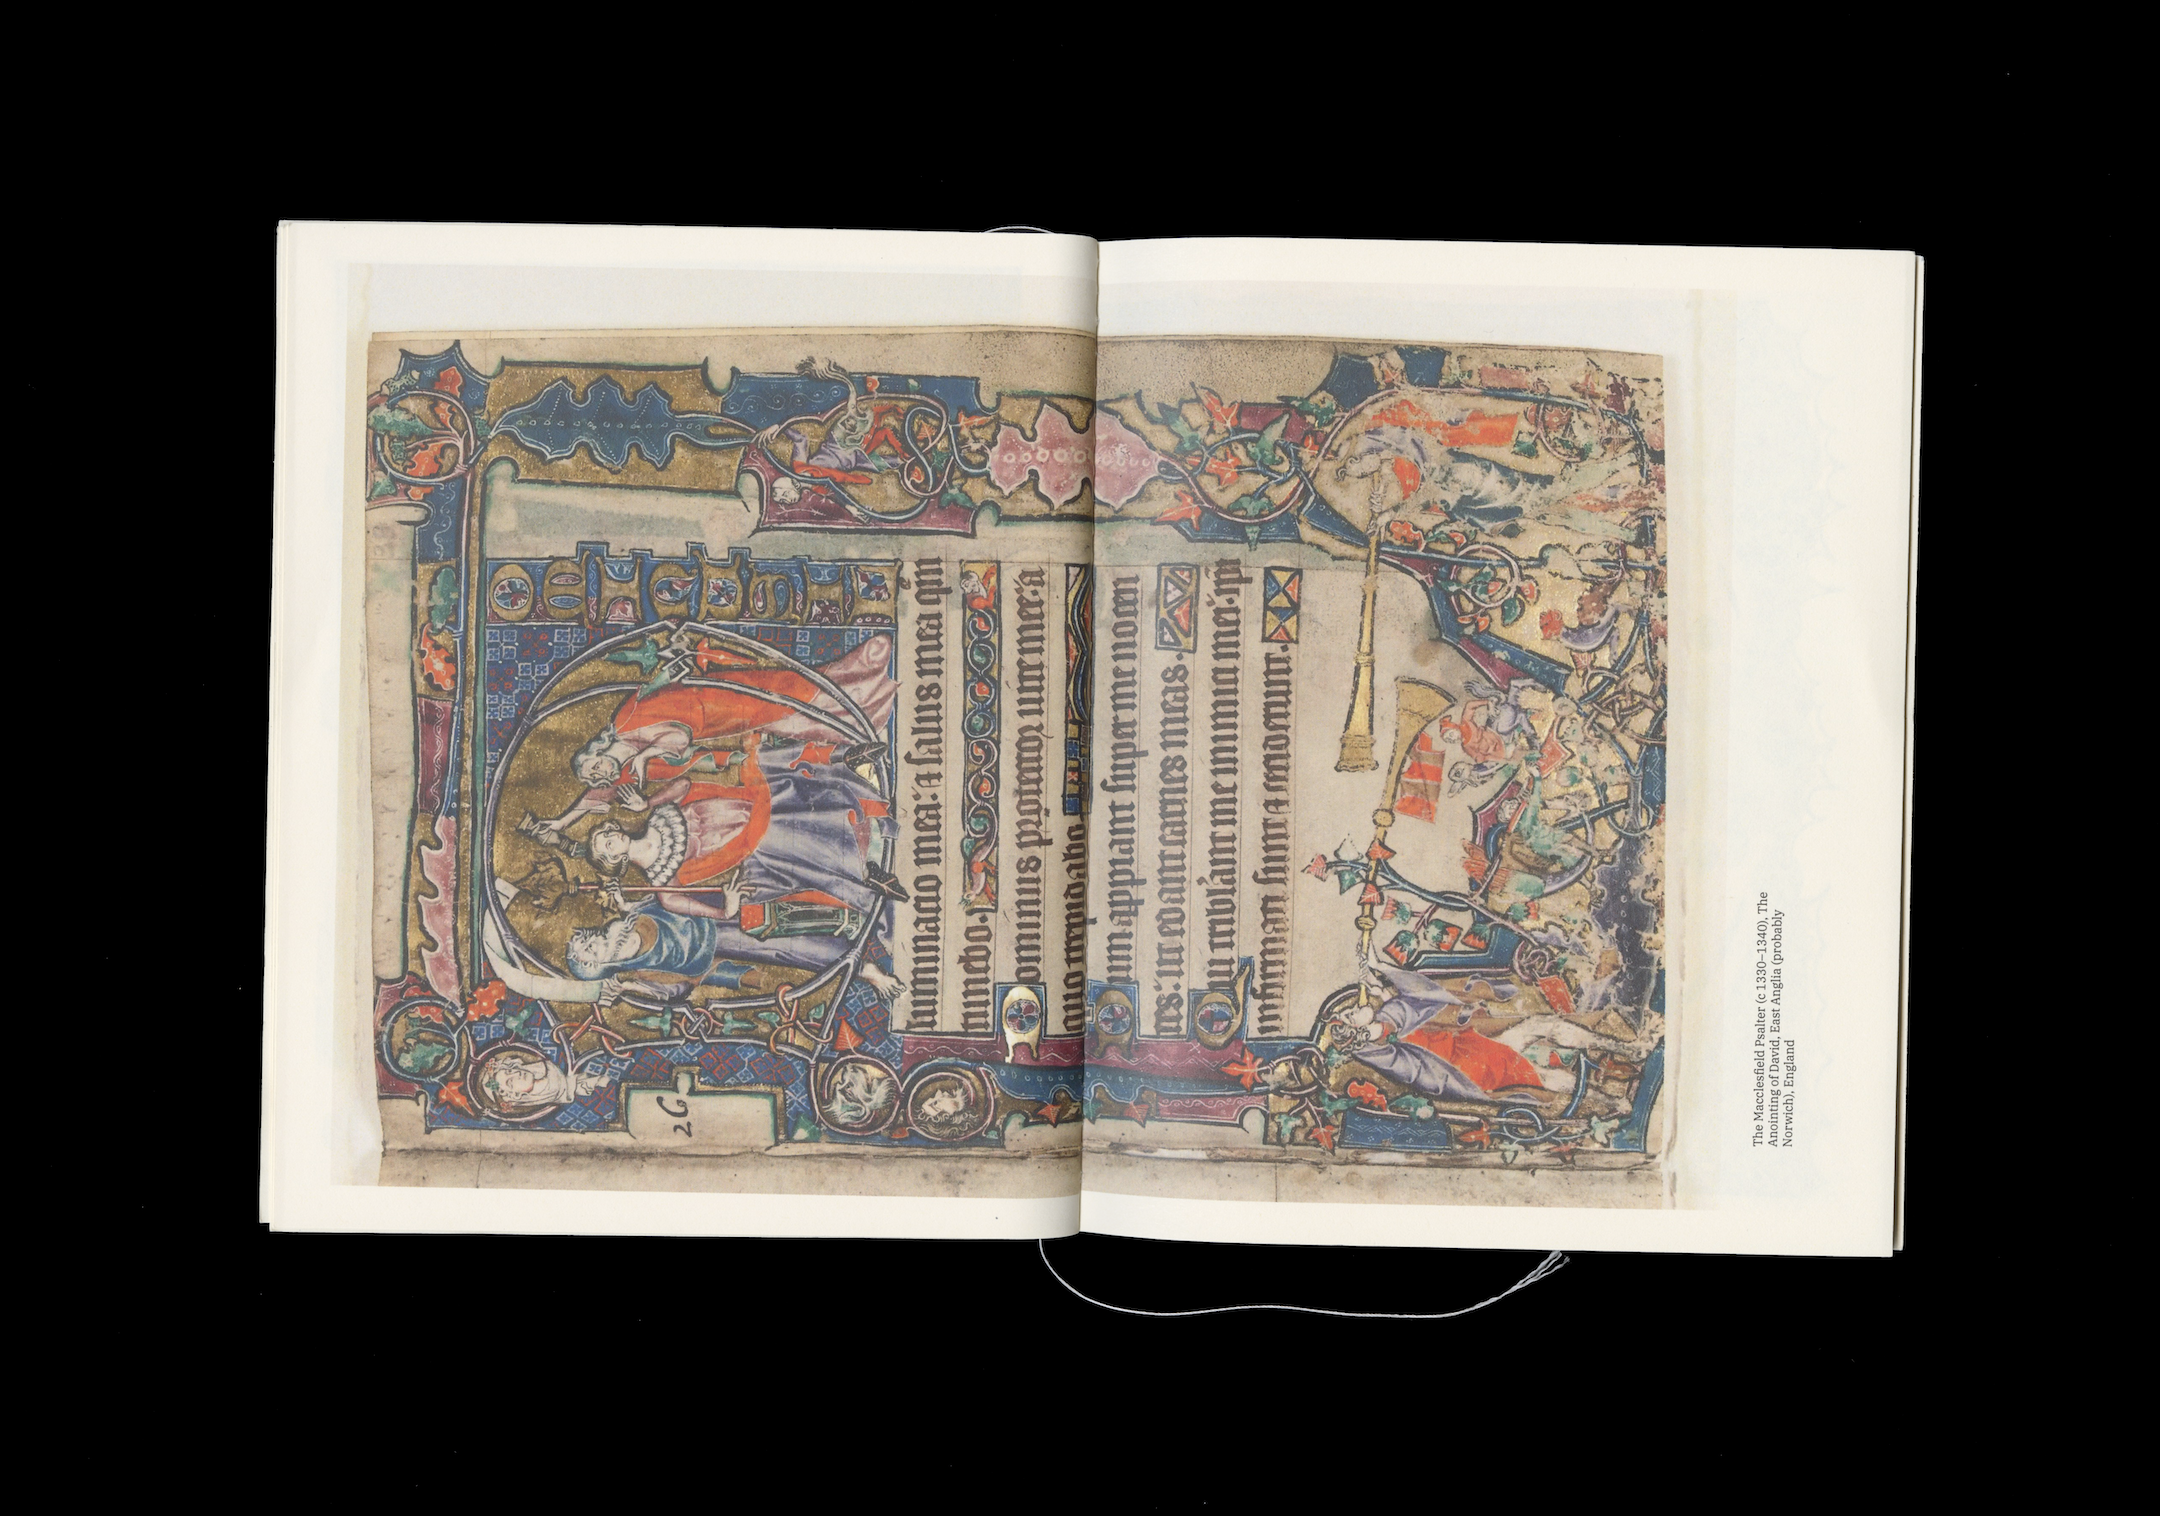 26
luminatio mea: ⁊ salus mea quē
timebo.
Dominus protector vite mee: a
quo trepidabo
Dum appropiant super me nocen
tes: ut edant carnes meas.
Qui tribulant me inimici mei: ipi
infirmati sunt ⁊ ceciderunt.
The Macclesfield Psalter (c 1330–1340), The
Anointing of David, East Anglia (probably
Norwich), England